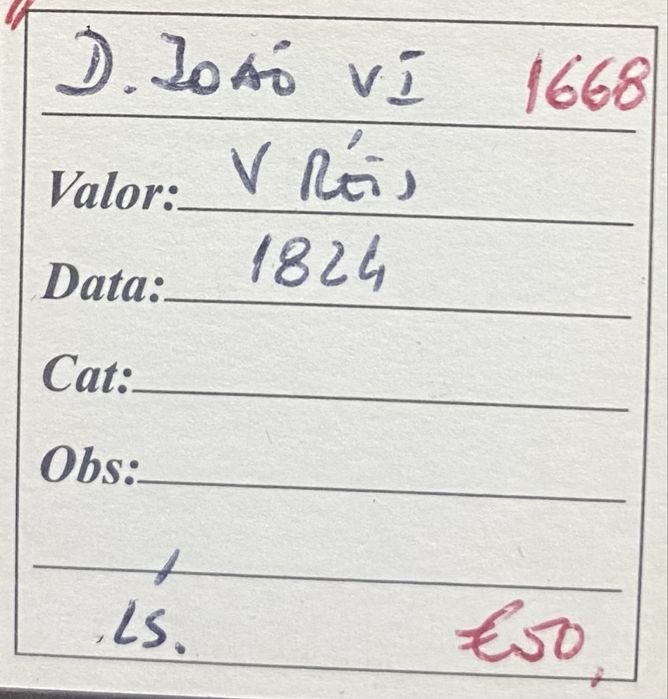 D. João VI 1668
Valor: V Réis
Data: 1824
Cat:
Obs:
LS. €50,